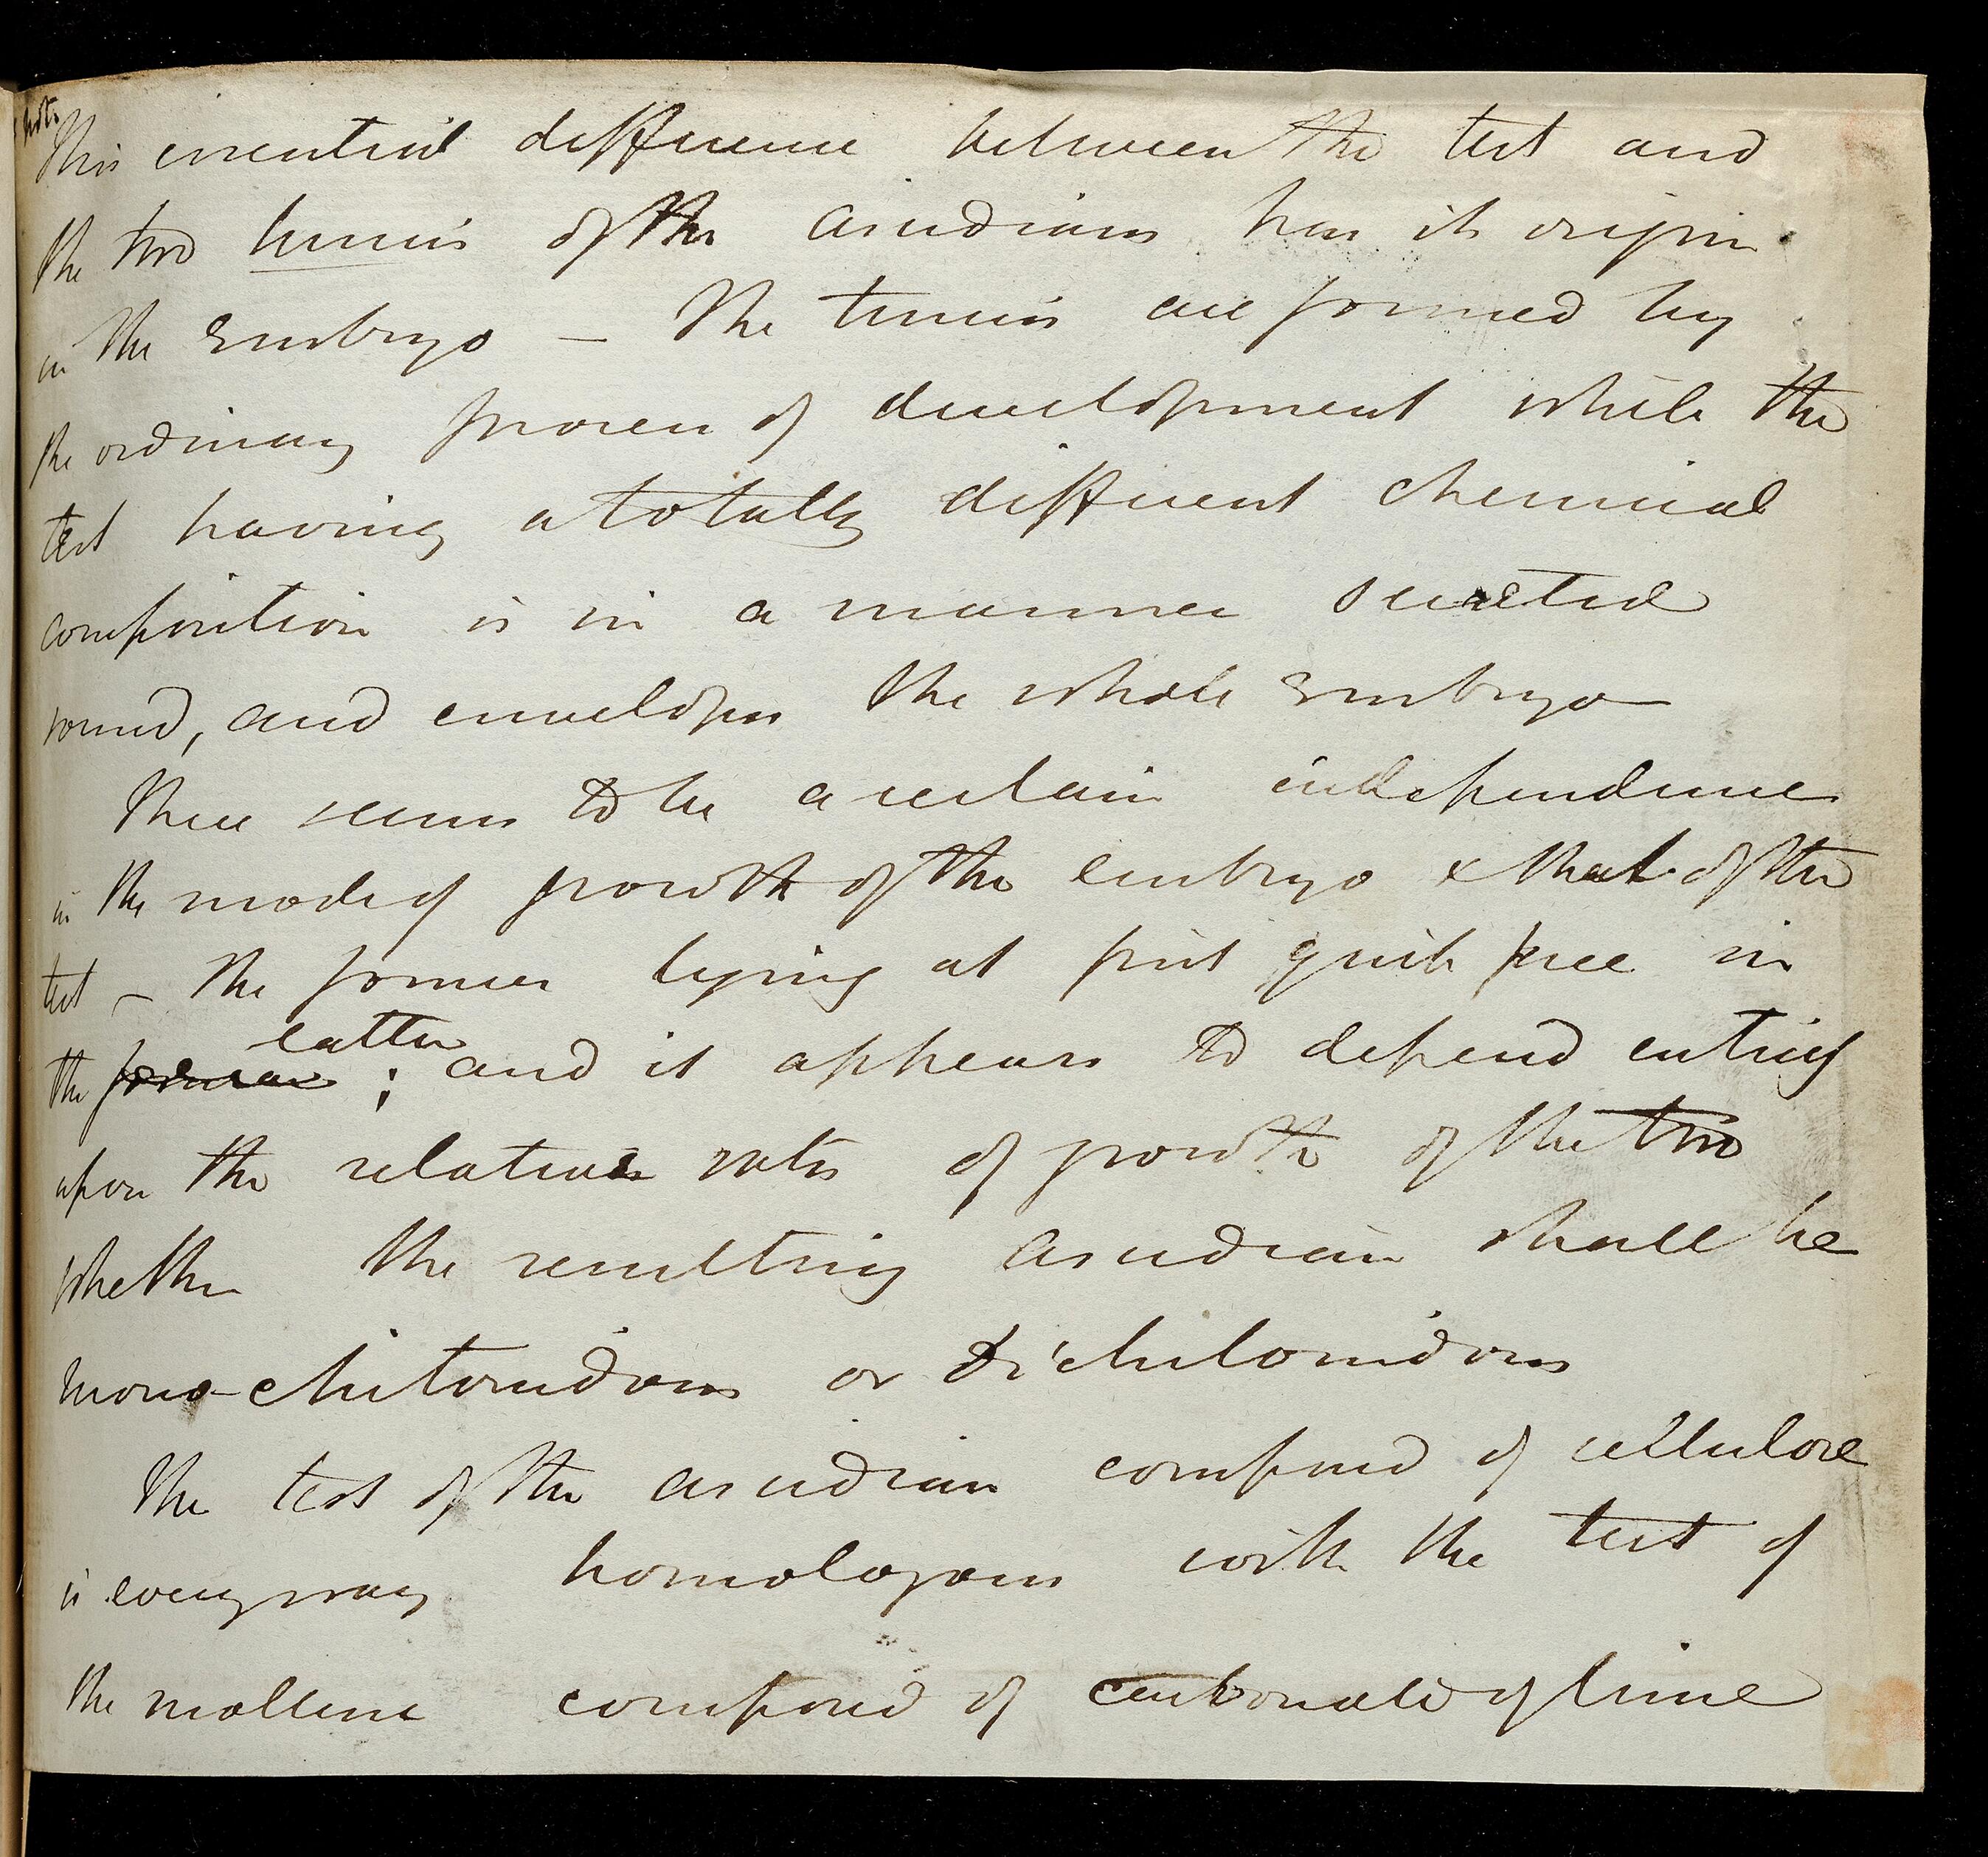 note
This essential difference between the test and
the two tunics of the ascidians has its origin
in the Embryo — The tunics are formed by
the ordinary process of development while the
test having a totally different chemical
composition is in a manner secreted
round, and envelopes the whole Embryo
There seems to be a certain independence
in the mode of growth of the embryo & that of the
test — The former lying at first quite free in
latter
the former ; and it appears to depend entirely
upon the relative rates of growth of the two
whether the resulting ascidian shall be
mono-chitonidous or dichitonidous
The test of the ascidian composed of cellulose
is every way homologous with the test of
the mollusc composed of carbonate of lime